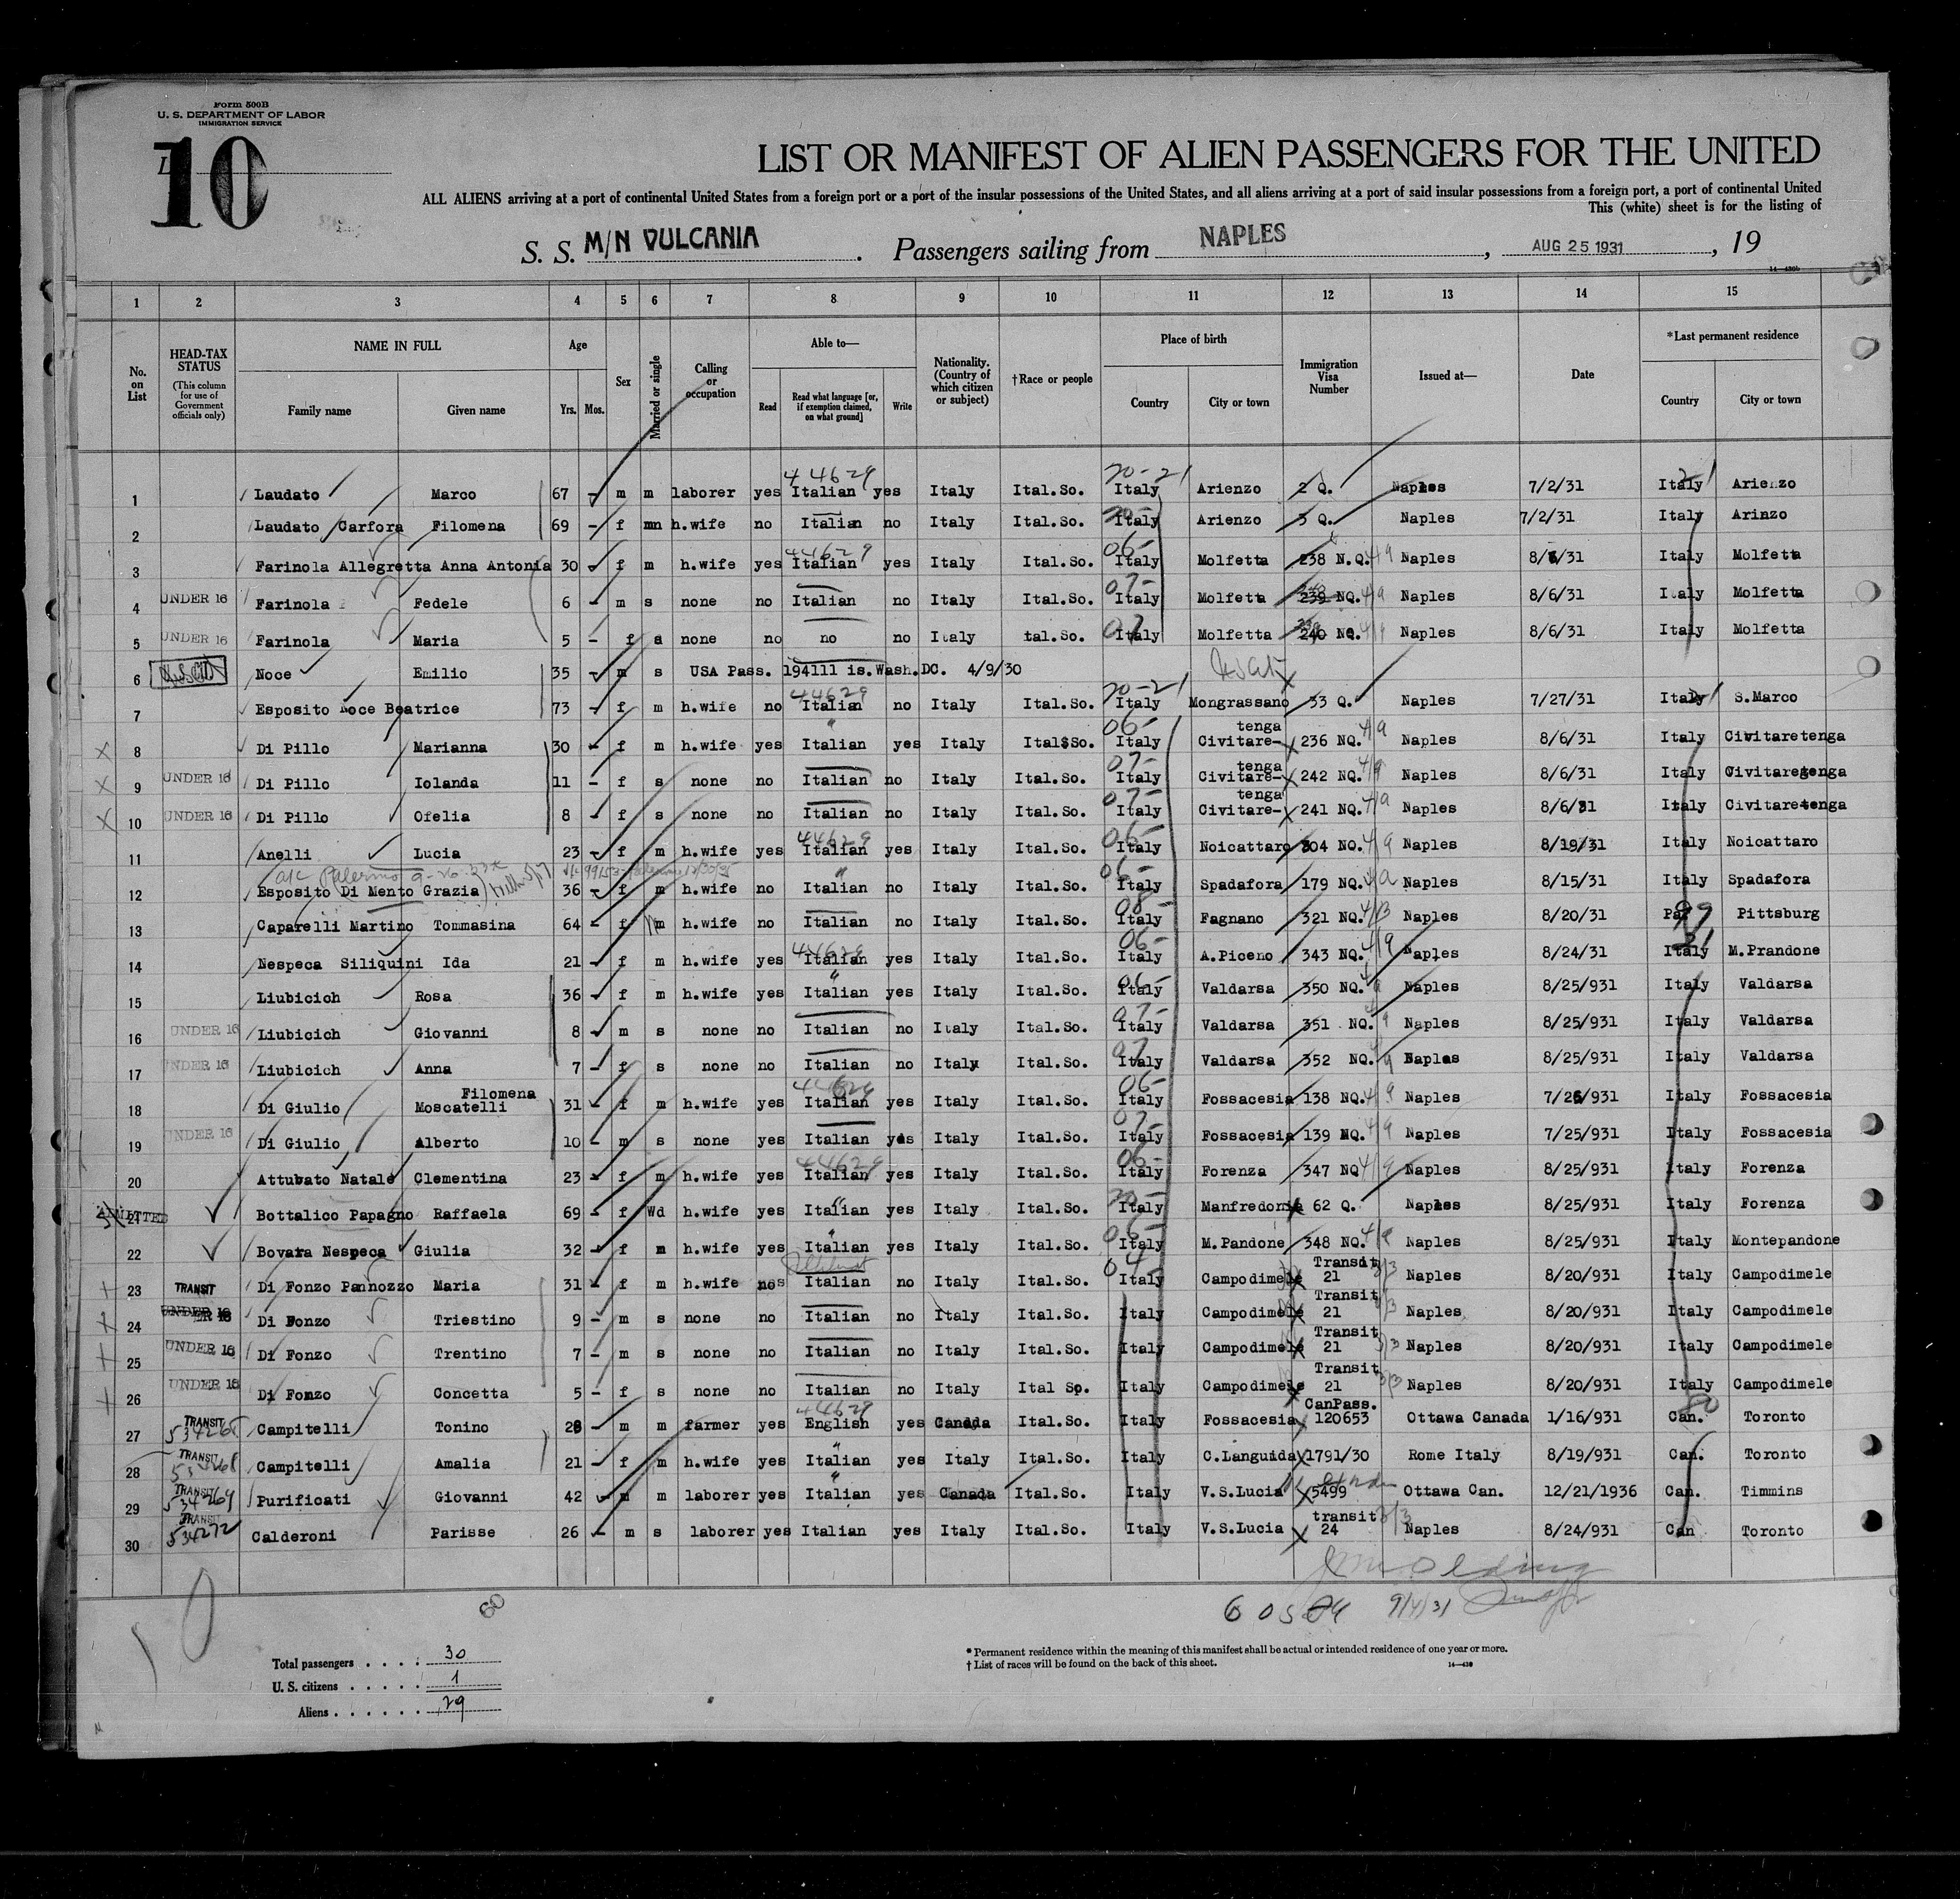 Form 500B
U. S. DEPARTMENT OF LABOR
IMMIGRATION SERVICE
10
LIST OR MANIFEST OF ALIEN PASSENGERS FOR THE UNITED
ALL ALIENS arriving at a port of continental United States from a foreign port or a port of the insular possessions of the United States, and all aliens arriving at a port of said insular possessions from a foreign port, a port of continental United
This (white) sheet is for the listing of
S. S. M/N VULCANIA. Passengers sailing from NAPLES, AUG 25 1931, 19
14—430b
1 2 3 4 5 6 7 8 9 10 11 12 13 14 15
No. on List
HEAD-TAX STATUS (This column for use of Government officials only)
NAME IN FULL Family name Given name
Age Yrs. Mos.
Sex
Married or single
Calling or occupation
Able to— Read Read what language [or, if exemption claimed, on what ground] Write
Nationality. (Country of which citizen or subject)
†Race or people
Place of birth Country City or town
Immigration Visa Number
Issued at—
Date
*Last permanent residence Country City or town
44629 20-21 21
1 Laudato Marco 67 - m m laborer yes Italian yes Italy Ital.So. Italy Arienzo 2 Q. Naples 7/2/31 Italy Arienzo
2 Laudato Carfora Filomena 69 - f mn h.wife no Italian no Italy Ital.So. Italy Arienzo 3 Q. Naples 7/2/31 Italy Arinzo
44629 06-
3 Farinola Allegretta Anna Antonia 30 - f m h.wife yes Italian yes Italy Ital.So. Italy Molfetta 238 N.Q. 4/9 Naples 8/6/31 Italy Molfetta
07-
4 UNDER 16 Farinola Fedele 6 - m s none no Italian no Italy Ital.So. Italy Molfetta 239 NQ. 4/9 Naples 8/6/31 Italy Molfetta
5 UNDER 16 Farinola Maria 5 - f s none no no no Italy tal.So. Italy Molfetta 240 NQ. 4/9 Naples 8/6/31 Italy Molfetta
6 Noce Emilio 35 - m s USA Pass. 194111 is.Wash.DC. 4/9/30
44629 20-21
7 Esposito Noce Beatrice 73 - f m h.wife no Italian no Italy Ital.So. Italy Mongrassano 33 Q. Naples 7/27/31 Italy S.Marco
06- tenga
8 Di Pillo Marianna 30 - f m h.wife yes Italian yes Italy Ital$So. Italy Civitare- 236 NQ. 4/9 Naples 8/6/31 Italy Civitaretenga
07- tenga
9 UNDER 16 Di Pillo Iolanda 11 - f s none no Italian no Italy Ital.So. Italy Civitare- 242 NQ. 4/9 Naples 8/6/31 Italy Civitaretenga
07- tenga
10 UNDER 16 Di Pillo Ofelia 8 - f s none no Italian no Italy Ital.So. Italy Civitare- 241 NQ. 4/9 Naples 8/6/31 Italy Civitaretenga
44629 06-
11 Anelli Lucia 23 - f m h.wife yes Italian yes Italy Ital.So. Italy Noicattaro 304 NQ. 4/9 Naples 8/19/31 Italy Noicattaro
Palermo 9-26-
12 Esposito Di Mento Grazia 36 - f m h.wife no Italian no Italy Ital.So. Italy Spadafora 179 NQ. 4/9 Naples 8/15/31 Italy Spadafora
08-
13 Caparelli Martino Tommasina 64 - f m h.wife no Italian no Italy Ital.So. Italy Fagnano 321 NQ. Naples 8/20/31 Pa. Pittsburg
44629 06- 21
14 Nespeca Siliquini Ida 21 - f m h.wife yes Italian yes Italy Ital.So. Italy A.Piceno 343 NQ. 4/9 Naples 8/24/31 Italy M.Prandone
06-
15 Liubicich Rosa 36 - f m h.wife yes Italian yes Italy Ital.So. Italy Valdarsa 350 NQ. Naples 8/25/931 Italy Valdarsa
07-
16 UNDER 16 Liubicich Giovanni 8 - m s none no Italian no Italy Ital.So. Italy Valdarsa 351 NQ. Naples 8/25/931 Italy Valdarsa
07
17 UNDER 16 Liubicich Anna 7 - f s none no Italian no Italy Ital.So. Italy Valdarsa 352 NQ. Naples 8/25/931 Italy Valdarsa
Filomena 44629 06-
18 Di Giulio Moscatelli 31 - f m h.wife yes Italian yes Italy Ital.So. Italy Fossacesia 138 NQ. 4/9 Naples 7/25/931 Italy Fossacesia
07-
19 UNDER 16 Di Giulio Alberto 10 - m s none yes Italian yes Italy Ital.So. Italy Fossacesia 139 NQ. 4/9 Naples 7/25/931 Italy Fossacesia
44629 06-
20 Attubato Natale Clementina 23 - f m h.wife yes Italian yes Italy Ital.So. Italy Forenza 347 NQ 4/9 Naples 8/25/931 Italy Forenza
21 ADMITTED Bottalico Papagno Raffaela 69 - f Wd h.wife yes Italian yes Italy Ital.So. Italy Manfredonia 62 Q. Naples 8/25/931 Italy Forenza
06-
22 Bovara Nespeca Giulia 32 - f m h.wife yes Italian yes Italy Ital.So. Italy M.Pandone 348 NQ. 4/9 Naples 8/25/931 Italy Montepandone
04- Transit
23 TRANSIT Di Fonzo Pannozzo Maria 31 - f m h.wife no Italian no Italy Ital.So. Italy Campodimele 21 3/3 Naples 8/20/931 Italy Campodimele
Transit
24 UNDER 16 Di Fonzo Triestino 9 - m s none no Italian no Italy Ital.So. Italy Campodimele 21 3/3 Naples 8/20/931 Italy Campodimele
Transit
25 UNDER 16 Di Fonzo Trentino 7 - m s none no Italian no Italy Ital.So. Italy Campodimele 21 3/3 Naples 8/20/931 Italy Campodimele
Transit
26 UNDER 16 Di Fonzo Concetta 5 - f s none no Italian no Italy Ital So. Italy Campodimele 21 3/3 Naples 8/20/931 Italy Campodimele
TRANSIT 44629 CanPass.
27 534265 Campitelli Tonino 28 - m m farmer yes English yes Canada Ital.So. Italy Fossacesia 120653 Ottawa Canada 1/16/931 Can. Toronto
TRANSIT
28 Campitelli Amalia 21 - f m h.wife yes Italian yes Italy Ital.So. Italy C.Languida 1791/30 Rome Italy 8/19/931 Can. Toronto
TRANSIT
29 534269 Purificati Giovanni 42 - m m laborer yes Italian yes Canada Ital.So. Italy V.S.Lucia 5499 Ottawa Can. 12/21/1936 Can. Timmins
TRANSIT transit
30 534272 Calderoni Parisse 26 - m s laborer yes Italian yes Italy Ital.So. Italy V.S.Lucia 24 3/3 Naples 8/24/931 Can Toronto
60
9/4/31
Total passengers . . . . 30
U. S. citizens . . . . . 1
Aliens . . . . . . 29
* Permanent residence within the meaning of this manifest shall be actual or intended residence of one year or more.
† List of races will be found on the back of this sheet.
14—430